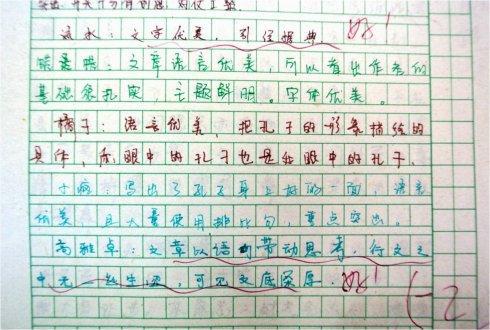 流水：文字优美，引经据典。好！
文章语言优美，可以看出作者的
基础很扎实，主题鲜明。字体优美。
橘子：语言优美，把孔子的形象描绘的
具体，你眼中的孔子也是我眼中的孔子。
写出了孔子身上好的一面，语言
优美，且大量使用排比句，重点突出。
高雅卓：文章以语句带动思考，行文之
中无一丝生涩，可见文底深厚。好！